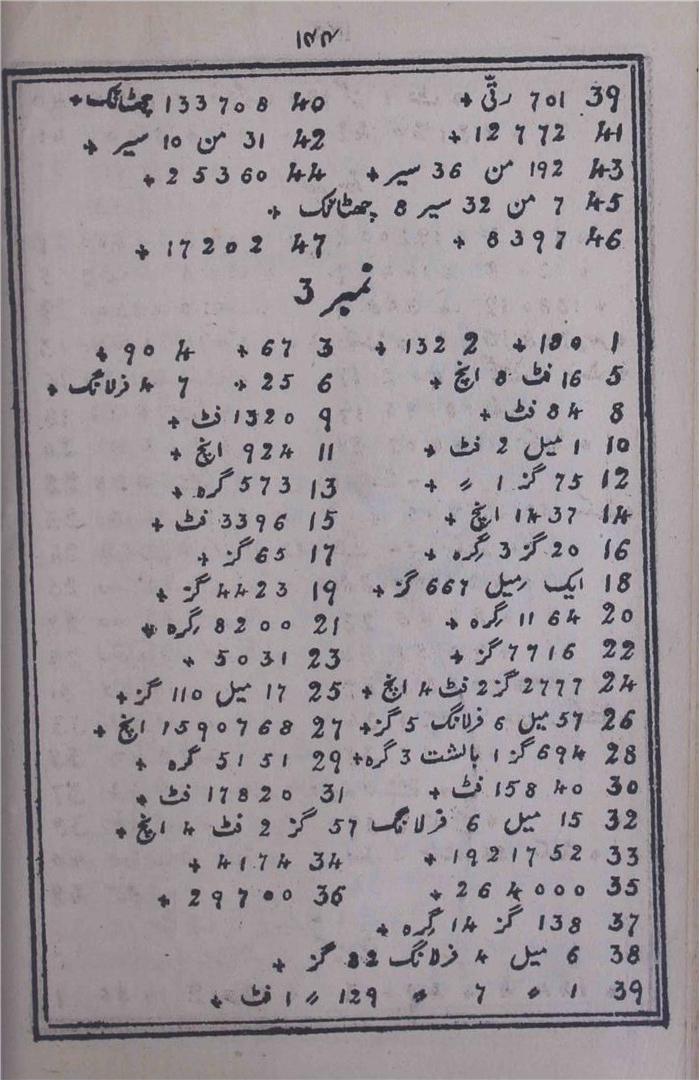 39 701 رتّی + 40 133708 چھٹانک +
41 12772 + 42 31 من 10 سیر +
43 192 من 36 سیر + 44 25360 +
45 7 من 32 سیر 8 چھٹانک +
46 8397 + 47 17202 +
نمبر 3
1 180 + 2 132 + 3 67 + 4 90 +
5 16 فٹ 8 انچ + 6 25 + 7 4 فرلانگ +
8 84 فٹ + 9 1320 فٹ +
10 1 میل 2 فٹ + 11 924 انچ +
12 75 گز 1 〃 + 13 573 گرہ +
14 1437 انچ + 15 3396 فٹ +
16 20 گز 3 گرہ + 17 65 گز +
18 ایک میل 667 گز + 19 4423 گز +
20 1164 گرہ + 21 8200 گرہ +
22 7716 گز + 23 5031 +
24 2777 گز 2 فٹ 4 انچ + 25 17 میل 110 گز +
26 57 میل 6 فرلانگ 5 گز + 27 1590768 انچ +
28 694 گز 1 بالشت 3 گرہ + 29 5151 گرہ +
30 15840 فٹ + 31 17820 فٹ +
32 15 میل 6 فرلانگ 57 گز 2 فٹ 4 انچ +
33 1921752 + 34 4174 +
35 264000 + 36 29700 +
37 138 گز 14 گرہ +
38 6 میل 4 فرلانگ 82 گز +
39 1 〃 7 〃 129 〃 1 فٹ +